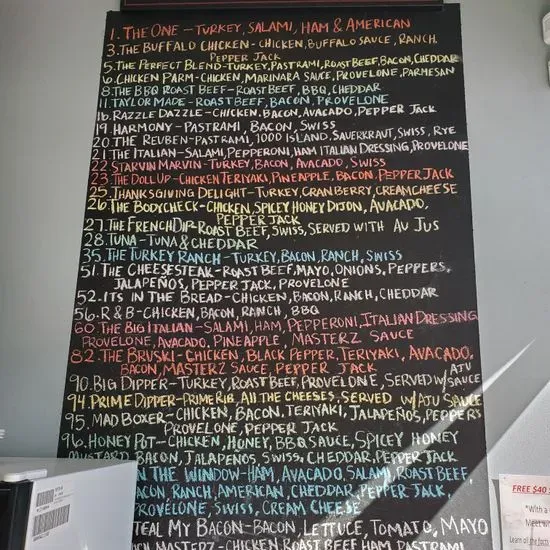 1. THE ONE - TURKEY, SALAMI, HAM & AMERICAN
3. THE BUFFALO CHICKEN - CHICKEN, BUFFALO SAUCE, RANCH,
PEPPER JACK
5. THE PERFECT BLEND - TURKEY, PASTRAMI, ROAST BEEF, BACON, CHEDDAR
6. CHICKEN PARM - CHICKEN, MARINARA SAUCE, PROVELONE, PARMESAN
8. THE BBQ ROAST BEEF - ROAST BEEF, BBQ, CHEDDAR
11. TAYLOR MADE - ROAST BEEF, BACON, PROVELONE
16. RAZZLE DAZZLE - CHICKEN, BACON, AVACADO, PEPPER JACK
19. HARMONY - PASTRAMI, BACON, SWISS
20. THE REUBEN - PASTRAMI, 1000 ISLAND, SAUERKRAUT, SWISS, RYE
21. THE ITALIAN - SALAMI, PEPPERONI, HAM ITALIAN DRESSING, PROVELONE
22. STARVIN MARVIN - TURKEY, BACON, AVACADO, SWISS
23. THE DOLL UP - CHICKEN TERIYAKI, PINEAPPLE, BACON, PEPPER JACK
25. THANKSGIVING DELIGHT - TURKEY, CRANBERRY, CREAM CHEESE
26. THE BODYCHECK - CHICKEN, SPICY HONEY DIJON, AVACADO,
PEPPER JACK
27. THE FRENCH DIP - ROAST BEEF, SWISS, SERVED WITH AU JUS
28. TUNA - TUNA & CHEDDAR
35. THE TURKEY RANCH - TURKEY, BACON, RANCH, SWISS
51. THE CHEESESTEAK - ROAST BEEF, MAYO, ONIONS, PEPPERS,
JALAPEÑOS, PEPPER JACK, PROVELONE
52. ITS IN THE BREAD - CHICKEN, BACON, RANCH, CHEDDAR
56. R & B - CHICKEN, BACON, RANCH, BBQ
60. THE BIG ITALIAN - SALAMI, HAM, PEPPERONI, ITALIAN DRESSING
PROVELONE, AVACADO, PINEAPPLE, MASTERZ SAUCE
82. THE BRUSKI - CHICKEN, BLACK PEPPER, TERIYAKI, AVACADO,
BACON, MASTERZ SAUCE, PEPPER JACK
90. BIG DIPPER - TURKEY, ROAST BEEF, PROVELONE, SERVED W/ AJU SAUCE
94. PRIME DIPPER - PRIME RIB, ALL THE CHEESES, SERVED W/ AJU SAUCE
95. MAD BOXER - CHICKEN, BACON, TERIYAKI, JALAPEÑOS, PEPPERS
PROVELONE, PEPPER JACK
96. HONEY POT - CHICKEN, HONEY, BBQ SAUCE, SPICEY HONEY
MUSTARD BACON, JALAPENOS, SWISS, CHEDDAR, PEPPER JACK
IN THE WINDOW - HAM, AVACADO, SALAMI, ROAST BEEF,
BACON RANCH, AMERICAN, CHEDDAR, PEPPER JACK,
PROVELONE, SWISS, CREAM CHEESE
STEAL MY BACON - BACON, LETTUCE, TOMATO, MAYO
MASTERZ - CHICKEN, ROAST BEEF, HAM, PASTRAMI
FREE $40
*With a
Meet w
Learn all the facts